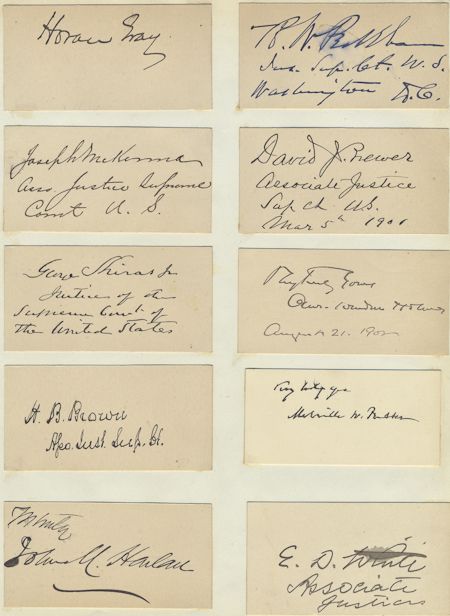 Horace Gray
R. W. Peckham
Jus. Sup. Ct. U.S.
Washington D.C.
Joseph McKenna
Asso Justice Supreme
Court U. S.
David J. Brewer
Associate Justice
Sup Ct U.S.
Mar 5th 1901
George Shiras Jr
Justice of the
Supreme Court of
the United States
Truly Yours
Oliver Wendell Holmes
August 21. 1902
H. B. Brown
Asso. Just. Sup. Ct.
Very truly yrs
Melville W. Fuller
John M. Harlan
E. D. White
Associate
Justice